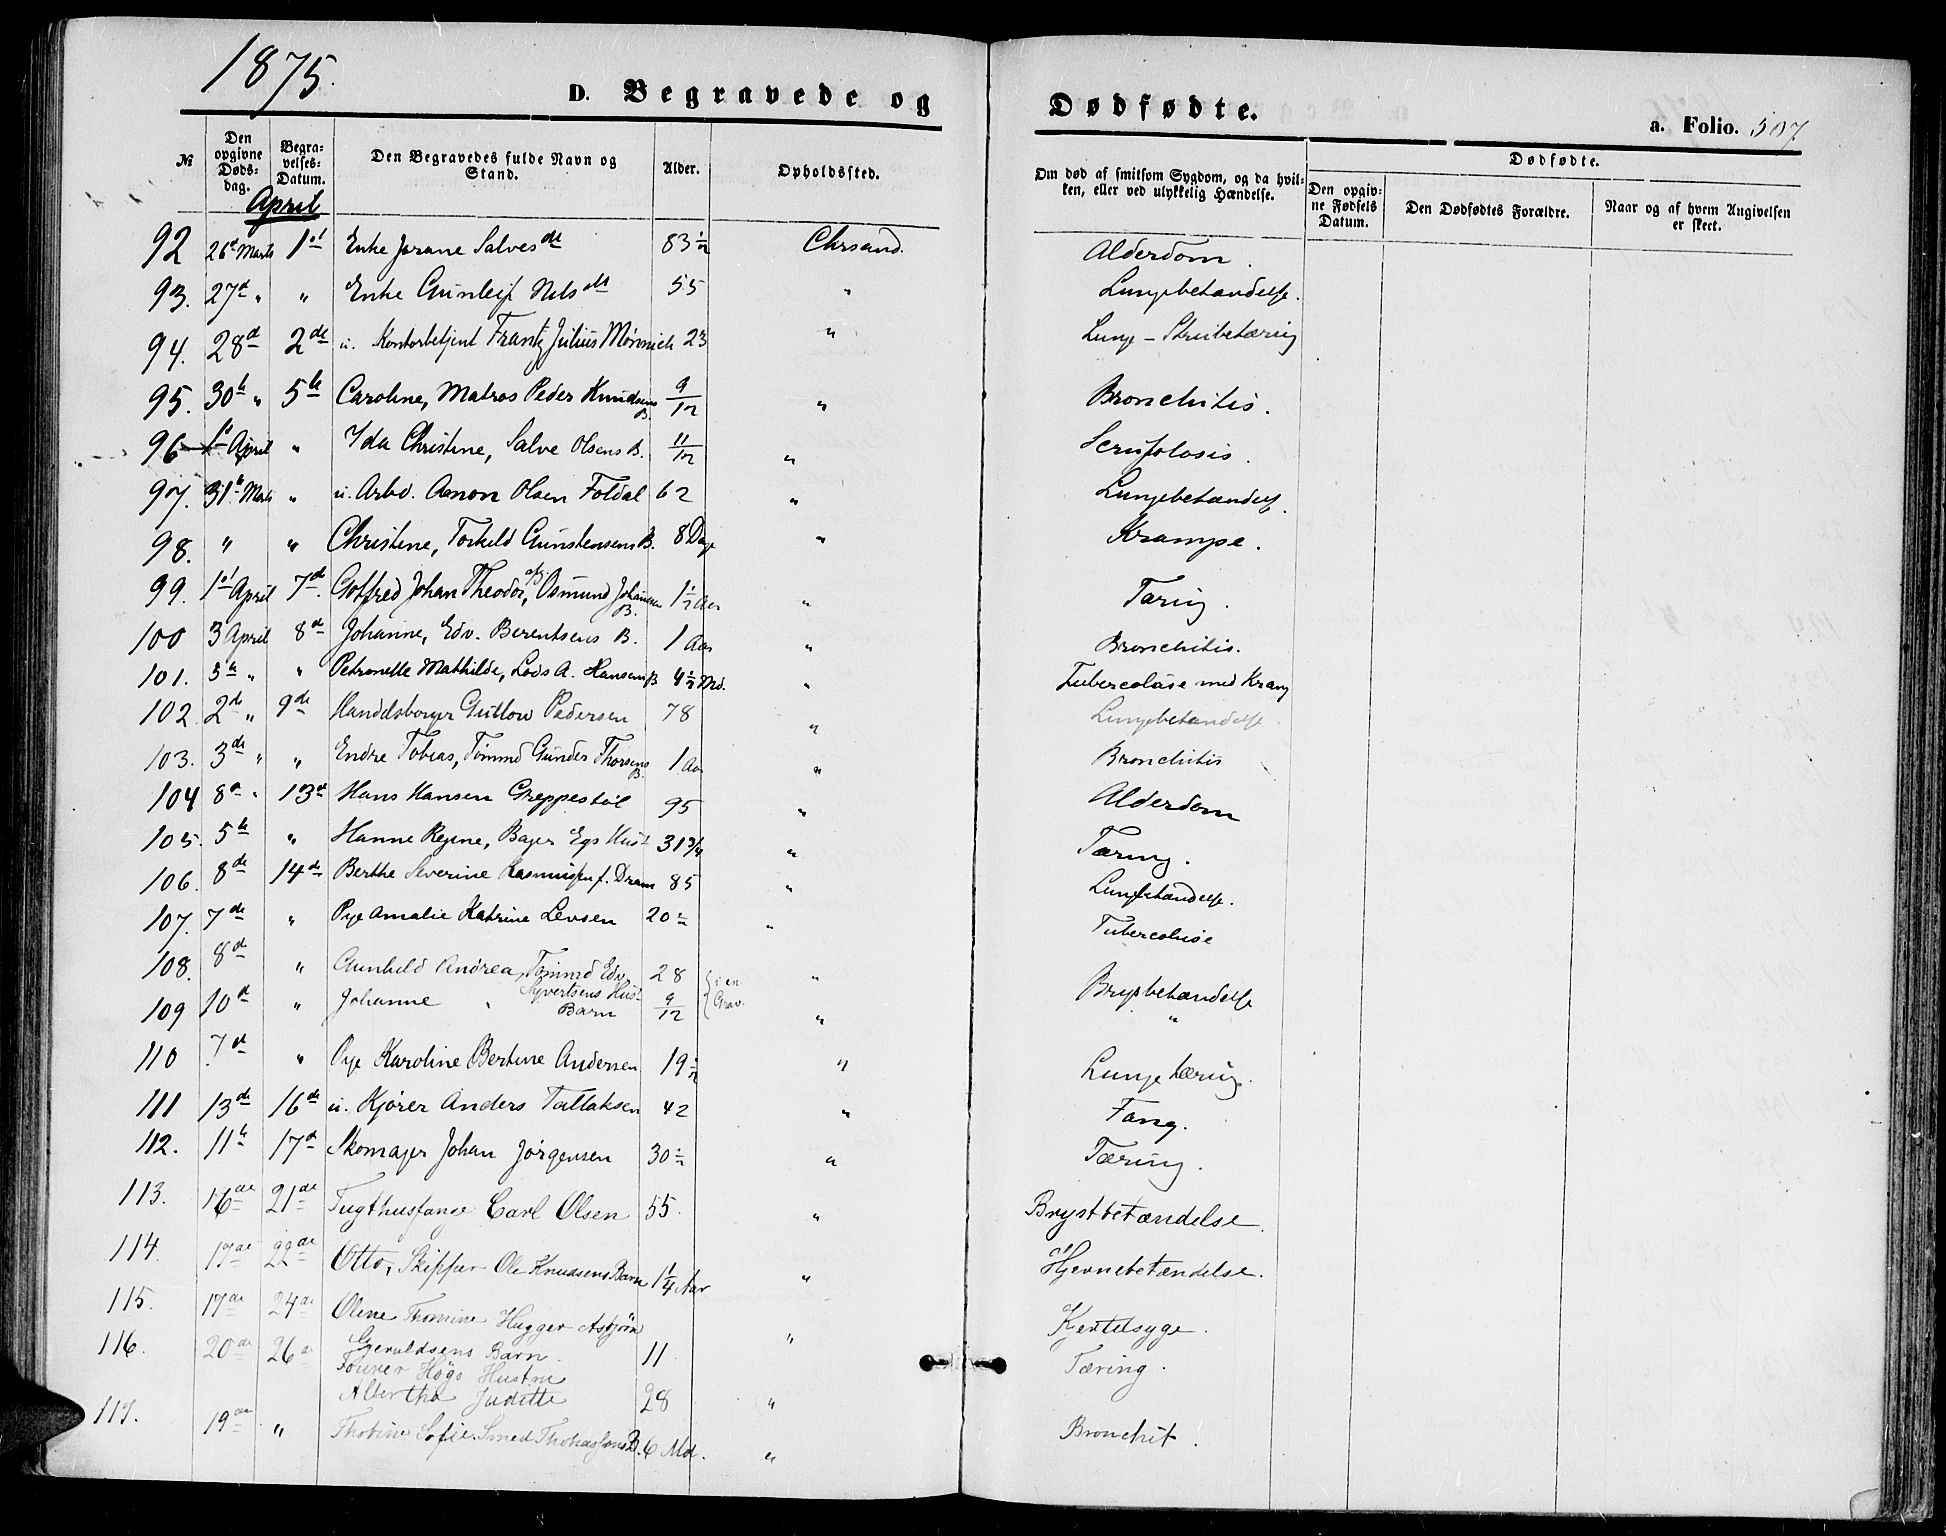 1875.
D. Begravede og Dødfødte.
a. Folio. 507
№ Den opgivne Døds-dag. Begra-velses-Datum. Den Begravedes fulde Navn og Stand. Alder. Opholdssted. Om død af smitsom Sygdom, og da hvil-ken, eller ved ulykkelig Hændelse. Dødfødte. Den opgiv-ne Fødsels Datum. Den Dødfødtes Forældre. Naar og af hvem Angivelsen er skeet.
April
92 26de Marts 1st Enke Jorane Salvesdt 83 1/2 Chrsand. Alderdom.
93. 27d " " Enke Gunleif Nilsdt 55 " Lungebetændelse.
94. 28d 2de u. Kontorbetjent Frantz Julius Mønnich 23 " Lunge-Strubetæring
95. 30te " 5te Caroline, Matros Peder Knudsens B. 9/12 " Bronchitis.
96 1st April " Ida Christine, Salve Olsens B. 11/12 " Scrufolosis.
97. 31te Marts " u. Arbd. Amon Olsen Foldal 62 " Lungebetændelse.
98. " " Christine, Torkild Gunstensens B. 8 Dage " Krampe.
99. 1st April 7de Gotfred Johan Theodor, Osmund Johansen B. 1 1/2 Aar " Tæring.
100 3 April 8de Johanne, Edv. Berentsens B. 1 Aar " Bronchitis.
101. 5te " " Petronelle Mathilde, Lods A. Hansens B 4 1/2 Md. " Tubercoløse med Kramp
102. 2de " 9de Handdsborger Guttow Pedersen 78 " Lungebetændelse.
103. 3de " " Endre Tobias, Tømmd Gunder Thorsens B. 1 Aar " Bronchitis
104 8de " 13de Hans Hansen Greppestøl 95 " Alderdom
105. 5te " Hanne Regine, Bager Egs Hust 31 3/4 " Tæring.
106. 8de 14de Berthe Severine Rasmussen f. Dram 85 " Lungebetændelse.
107. 7de " Pige Amalie Katrine Levsen 20 1/2 " Tubercoløse
108. 8de " Gunhild Andrea, Tømmd Edv. Syvertsens Hust 28 { i en Grav. " Brystbetændelse
109 10de " Johanne " Barn 9/12 " "
110 7de " Pige Karoline Bertine Andersen 19 1/2 " Lungetæring.
111 13de 16de u. Kjører Anders Tallaksen 42 " Fang.
112. 11te 17de Skomager Johan Jørgensen 30 1/2 " Tæring.
113. 16de 21de Tugthusfange Carl Olsen 55. " Brystbetændelse.
114. 17de 22de Otto, Skipper Ole Knudsens Barn 1 1/4 Aar " Hjernebetændelse.
115. 17de 24de Olene Thomine Hugger Asbjørn Gjeruldsens Barn. 11 " Kjertelsyge.
116. 20de 26de Tourer Høgs Hustru Albertha Judette 28 " Tæring.
117. 19de " Thobine Sofie Smed Thobiassens B. 6 Md. " Bronchit.